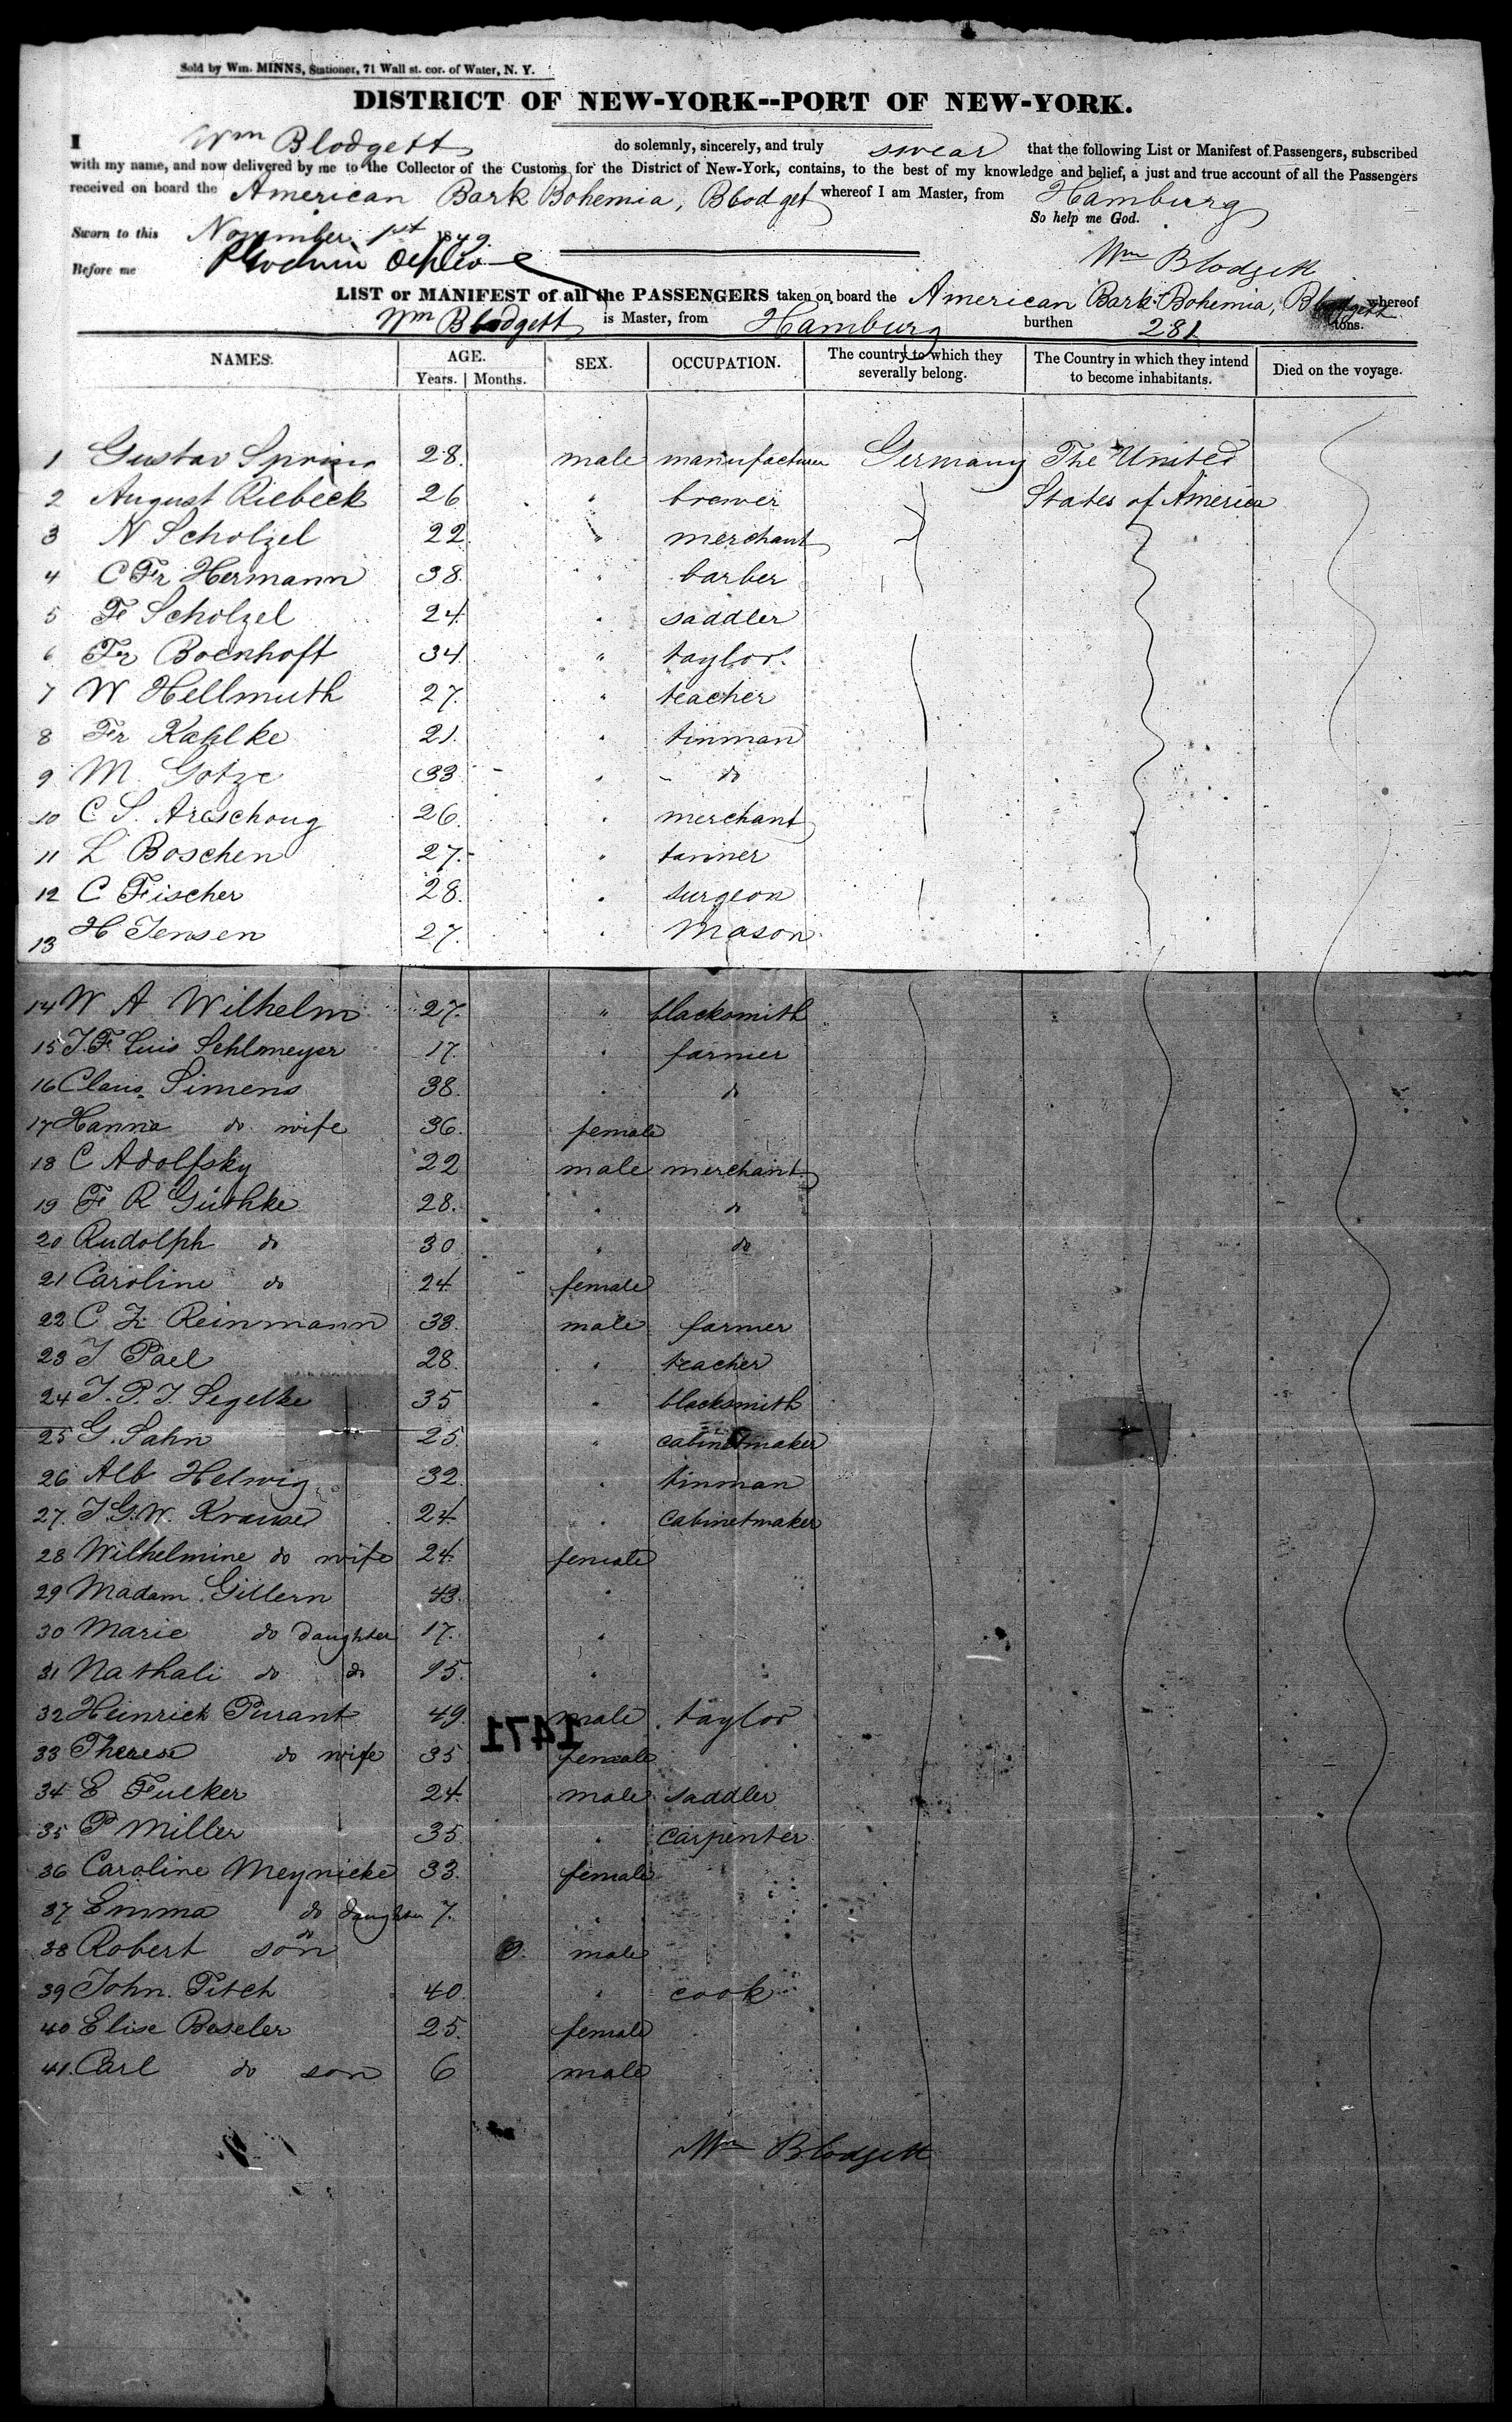 Sold by Wm. MINNS, Stationer, 71 Wall st. cor. of Water, N. Y.
DISTRICT OF NEW-YORK--PORT OF NEW-YORK.
I Wm Blodgett do solemnly, sincerely, and truly swear that the following List or Manifest of Passengers, subscribed
with my name, and now delivered by me to the Collector of the Customs for the District of New-York, contains, to the best of my knowledge and belief, a just and true account of all the Passengers
received on board the American Bark Bohemia, Blodget whereof I am Master, from Hamburg
So help me God.
Sworn to this November 1st 1849.
Before me
Wm Blodgett
LIST or MANIFEST of all the PASSENGERS taken on board the American Bark Bohemia, Blodgett whereof
Wm Blodgett is Master, from Hamburg burthen 281 tons.
NAMES. AGE. Years. Months. SEX. OCCUPATION. The country to which they severally belong. The Country in which they intend to become inhabitants. Died on the voyage.
1 Gustav 28. male manufacturer Germany The United
2 August Riebeck 26 " brewer States of America
3 N Scholzel 22. " merchant
4 C Fr Hermann 38. " barber
5 F Scholzel 24 " saddler
6 Fr Boenhoft 34 " taylor.
7 W Hellmuth 27. " teacher
8 Fr Kahlke 21. " tinman
9 M. Gotze 33 " do
10 C. S. Areschoug 26. " merchant
11 L Boschen 27. " tanner
12 C Fischer 28. " surgeon
13 H Jensen 27. " Mason
14 W A Wilhelm 27. " blacksmith
15 J. F. Luis Sehlmeyer 17. " farmer
16 Claus Simens 38. " do
17 Hanna do wife 36. female
18 C Adolfsky 22 male merchant
19 F R Guthke 28. " do
20 Rudolph do 30 " do
21 Caroline do 24 female
22 C Z. Reinmann 38. male farmer
23 J Pael 28. " teacher
24 J. P. J. Segelke 35 " blacksmith
25 G. Sahn 25. " cabinetmaker
26 Alb Helwig 32. " tinman
27. J. G. W. Krause 24 " cabinetmaker
28 Wilhelmine do wife 24. female
29 Madam Gillern 43. "
30 Marie do daughter 17. "
31 Nathali do do 15. "
32 Heinrich Purant 49. male taylor
33 Therese do wife 35 female
1471
34 E Fucker 24. male saddler
35 P Miller 35. " carpenter
36 Caroline Meynicke 33. female
37 Emma do daughter 7. "
38 Robert do son 9. male
39 John. Pitch 40. " cook
40 Elise Beseler 25. female
41. Carl do son 6 male
Wm Blodgett